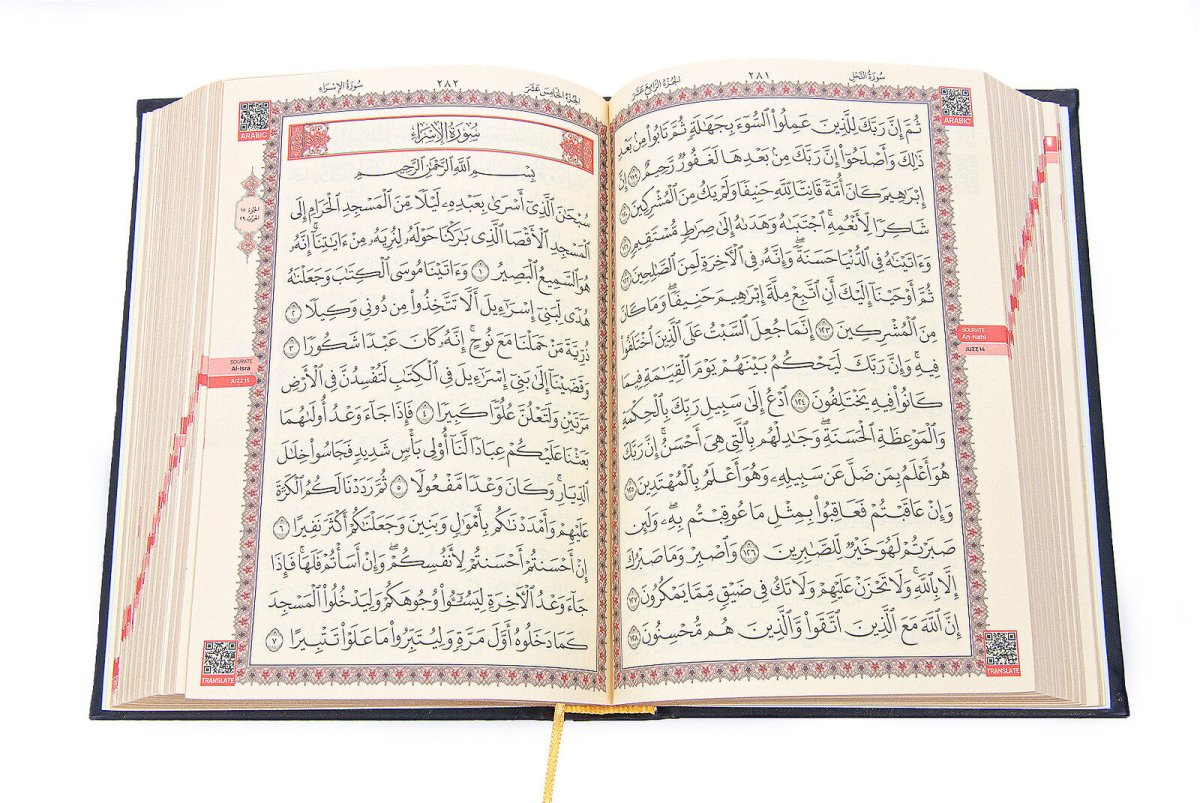 سُورَةُ النَّحْلِ
٢٨١
الجُزْءُ الرَّابِعَ عَشَرَ
ARABIC
ثُمَّ إِنَّ رَبَّكَ لِلَّذِينَ عَمِلُوا۟ ٱلسُّوٓءَ بِجَهَٰلَةٍ ثُمَّ تَابُوا۟ مِنۢ بَعْدِ
ذَٰلِكَ وَأَصْلَحُوٓا۟ إِنَّ رَبَّكَ مِنۢ بَعْدِهَا لَغَفُورٌ رَّحِيمٌ ١١٩ إِنَّ
إِبْرَٰهِيمَ كَانَ أُمَّةً قَانِتًا لِّلَّهِ حَنِيفًا وَلَمْ يَكُ مِنَ ٱلْمُشْرِكِينَ ١٢٠
شَاكِرًا لِّأَنْعُمِهِ ۚ ٱجْتَبَىٰهُ وَهَدَىٰهُ إِلَىٰ صِرَٰطٍ مُّسْتَقِيمٍ ١٢١
وَءَاتَيْنَٰهُ فِى ٱلدُّنْيَا حَسَنَةً ۖ وَإِنَّهُۥ فِى ٱلْءَاخِرَةِ لَمِنَ ٱلصَّٰلِحِينَ ١٢٢
ثُمَّ أَوْحَيْنَآ إِلَيْكَ أَنِ ٱتَّبِعْ مِلَّةَ إِبْرَٰهِيمَ حَنِيفًا ۖ وَمَا كَانَ
مِنَ ٱلْمُشْرِكِينَ ١٢٣ إِنَّمَا جُعِلَ ٱلسَّبْتُ عَلَى ٱلَّذِينَ ٱخْتَلَفُوا۟
فِيهِ ۚ وَإِنَّ رَبَّكَ لَيَحْكُمُ بَيْنَهُمْ يَوْمَ ٱلْقِيَٰمَةِ فِيمَا
كَانُوا۟ فِيهِ يَخْتَلِفُونَ ١٢٤ ٱدْعُ إِلَىٰ سَبِيلِ رَبِّكَ بِٱلْحِكْمَةِ
وَٱلْمَوْعِظَةِ ٱلْحَسَنَةِ ۖ وَجَٰدِلْهُم بِٱلَّتِى هِىَ أَحْسَنُ ۚ إِنَّ رَبَّكَ
هُوَ أَعْلَمُ بِمَن ضَلَّ عَن سَبِيلِهِۦ ۖ وَهُوَ أَعْلَمُ بِٱلْمُهْتَدِينَ ١٢٥
وَإِنْ عَاقَبْتُمْ فَعَاقِبُوا۟ بِمِثْلِ مَا عُوقِبْتُم بِهِۦ ۖ وَلَئِن
صَبَرْتُمْ لَهُوَ خَيْرٌ لِّلصَّٰبِرِينَ ١٢٦ وَٱصْبِرْ وَمَا صَبْرُكَ
إِلَّا بِٱللَّهِ ۚ وَلَا تَحْزَنْ عَلَيْهِمْ وَلَا تَكُ فِى ضَيْقٍ مِّمَّا يَمْكُرُونَ ١٢٧
إِنَّ ٱللَّهَ مَعَ ٱلَّذِينَ ٱتَّقَوا۟ وَّٱلَّذِينَ هُم مُّحْسِنُونَ ١٢٨
SOURATE
An-Nahl
JUZZ 14
TRANSLATE
الجُزْءُ الخَامِسَ عَشَرَ
٢٨٢
سُورَةُ الإِسْرَاءِ
ARABIC
سُورَةُ الإِسْرَاءِ
بِسْمِ ٱللَّهِ ٱلرَّحْمَٰنِ ٱلرَّحِيمِ
سُبْحَٰنَ ٱلَّذِىٓ أَسْرَىٰ بِعَبْدِهِۦ لَيْلًا مِّنَ ٱلْمَسْجِدِ ٱلْحَرَامِ إِلَى
ٱلْمَسْجِدِ ٱلْأَقْصَا ٱلَّذِى بَٰرَكْنَا حَوْلَهُۥ لِنُرِيَهُۥ مِنْ ءَايَٰتِنَآ ۚ إِنَّهُۥ
هُوَ ٱلسَّمِيعُ ٱلْبَصِيرُ ١ وَءَاتَيْنَا مُوسَى ٱلْكِتَٰبَ وَجَعَلْنَٰهُ
هُدًى لِّبَنِىٓ إِسْرَٰٓءِيلَ أَلَّا تَتَّخِذُوا۟ مِن دُونِى وَكِيلًا ٢
ذُرِّيَّةَ مَنْ حَمَلْنَا مَعَ نُوحٍ ۚ إِنَّهُۥ كَانَ عَبْدًا شَكُورًا ٣
وَقَضَيْنَآ إِلَىٰ بَنِىٓ إِسْرَٰٓءِيلَ فِى ٱلْكِتَٰبِ لَتُفْسِدُنَّ فِى ٱلْأَرْضِ
مَرَّتَيْنِ وَلَتَعْلُنَّ عُلُوًّا كَبِيرًا ٤ فَإِذَا جَآءَ وَعْدُ أُولَىٰهُمَا
بَعَثْنَا عَلَيْكُمْ عِبَادًا لَّنَآ أُو۟لِى بَأْسٍ شَدِيدٍ فَجَاسُوا۟ خِلَٰلَ
ٱلدِّيَارِ ۚ وَكَانَ وَعْدًا مَّفْعُولًا ٥ ثُمَّ رَدَدْنَا لَكُمُ ٱلْكَرَّةَ
عَلَيْهِمْ وَأَمْدَدْنَٰكُم بِأَمْوَٰلٍ وَبَنِينَ وَجَعَلْنَٰكُمْ أَكْثَرَ نَفِيرًا ٦
إِنْ أَحْسَنتُمْ أَحْسَنتُمْ لِأَنفُسِكُمْ ۖ وَإِنْ أَسَأْتُمْ فَلَهَا ۚ فَإِذَا
جَآءَ وَعْدُ ٱلْءَاخِرَةِ لِيَسُۥٓـُٔوا۟ وُجُوهَكُمْ وَلِيَدْخُلُوا۟ ٱلْمَسْجِدَ
كَمَا دَخَلُوهُ أَوَّلَ مَرَّةٍ وَلِيُتَبِّرُوا۟ مَا عَلَوْا۟ تَتْبِيرًا ٧
الجُزْءُ ١٥
الحِزْبُ ٢٩
SOURATE
Al-Isra
JUZZ 15
TRANSLATE